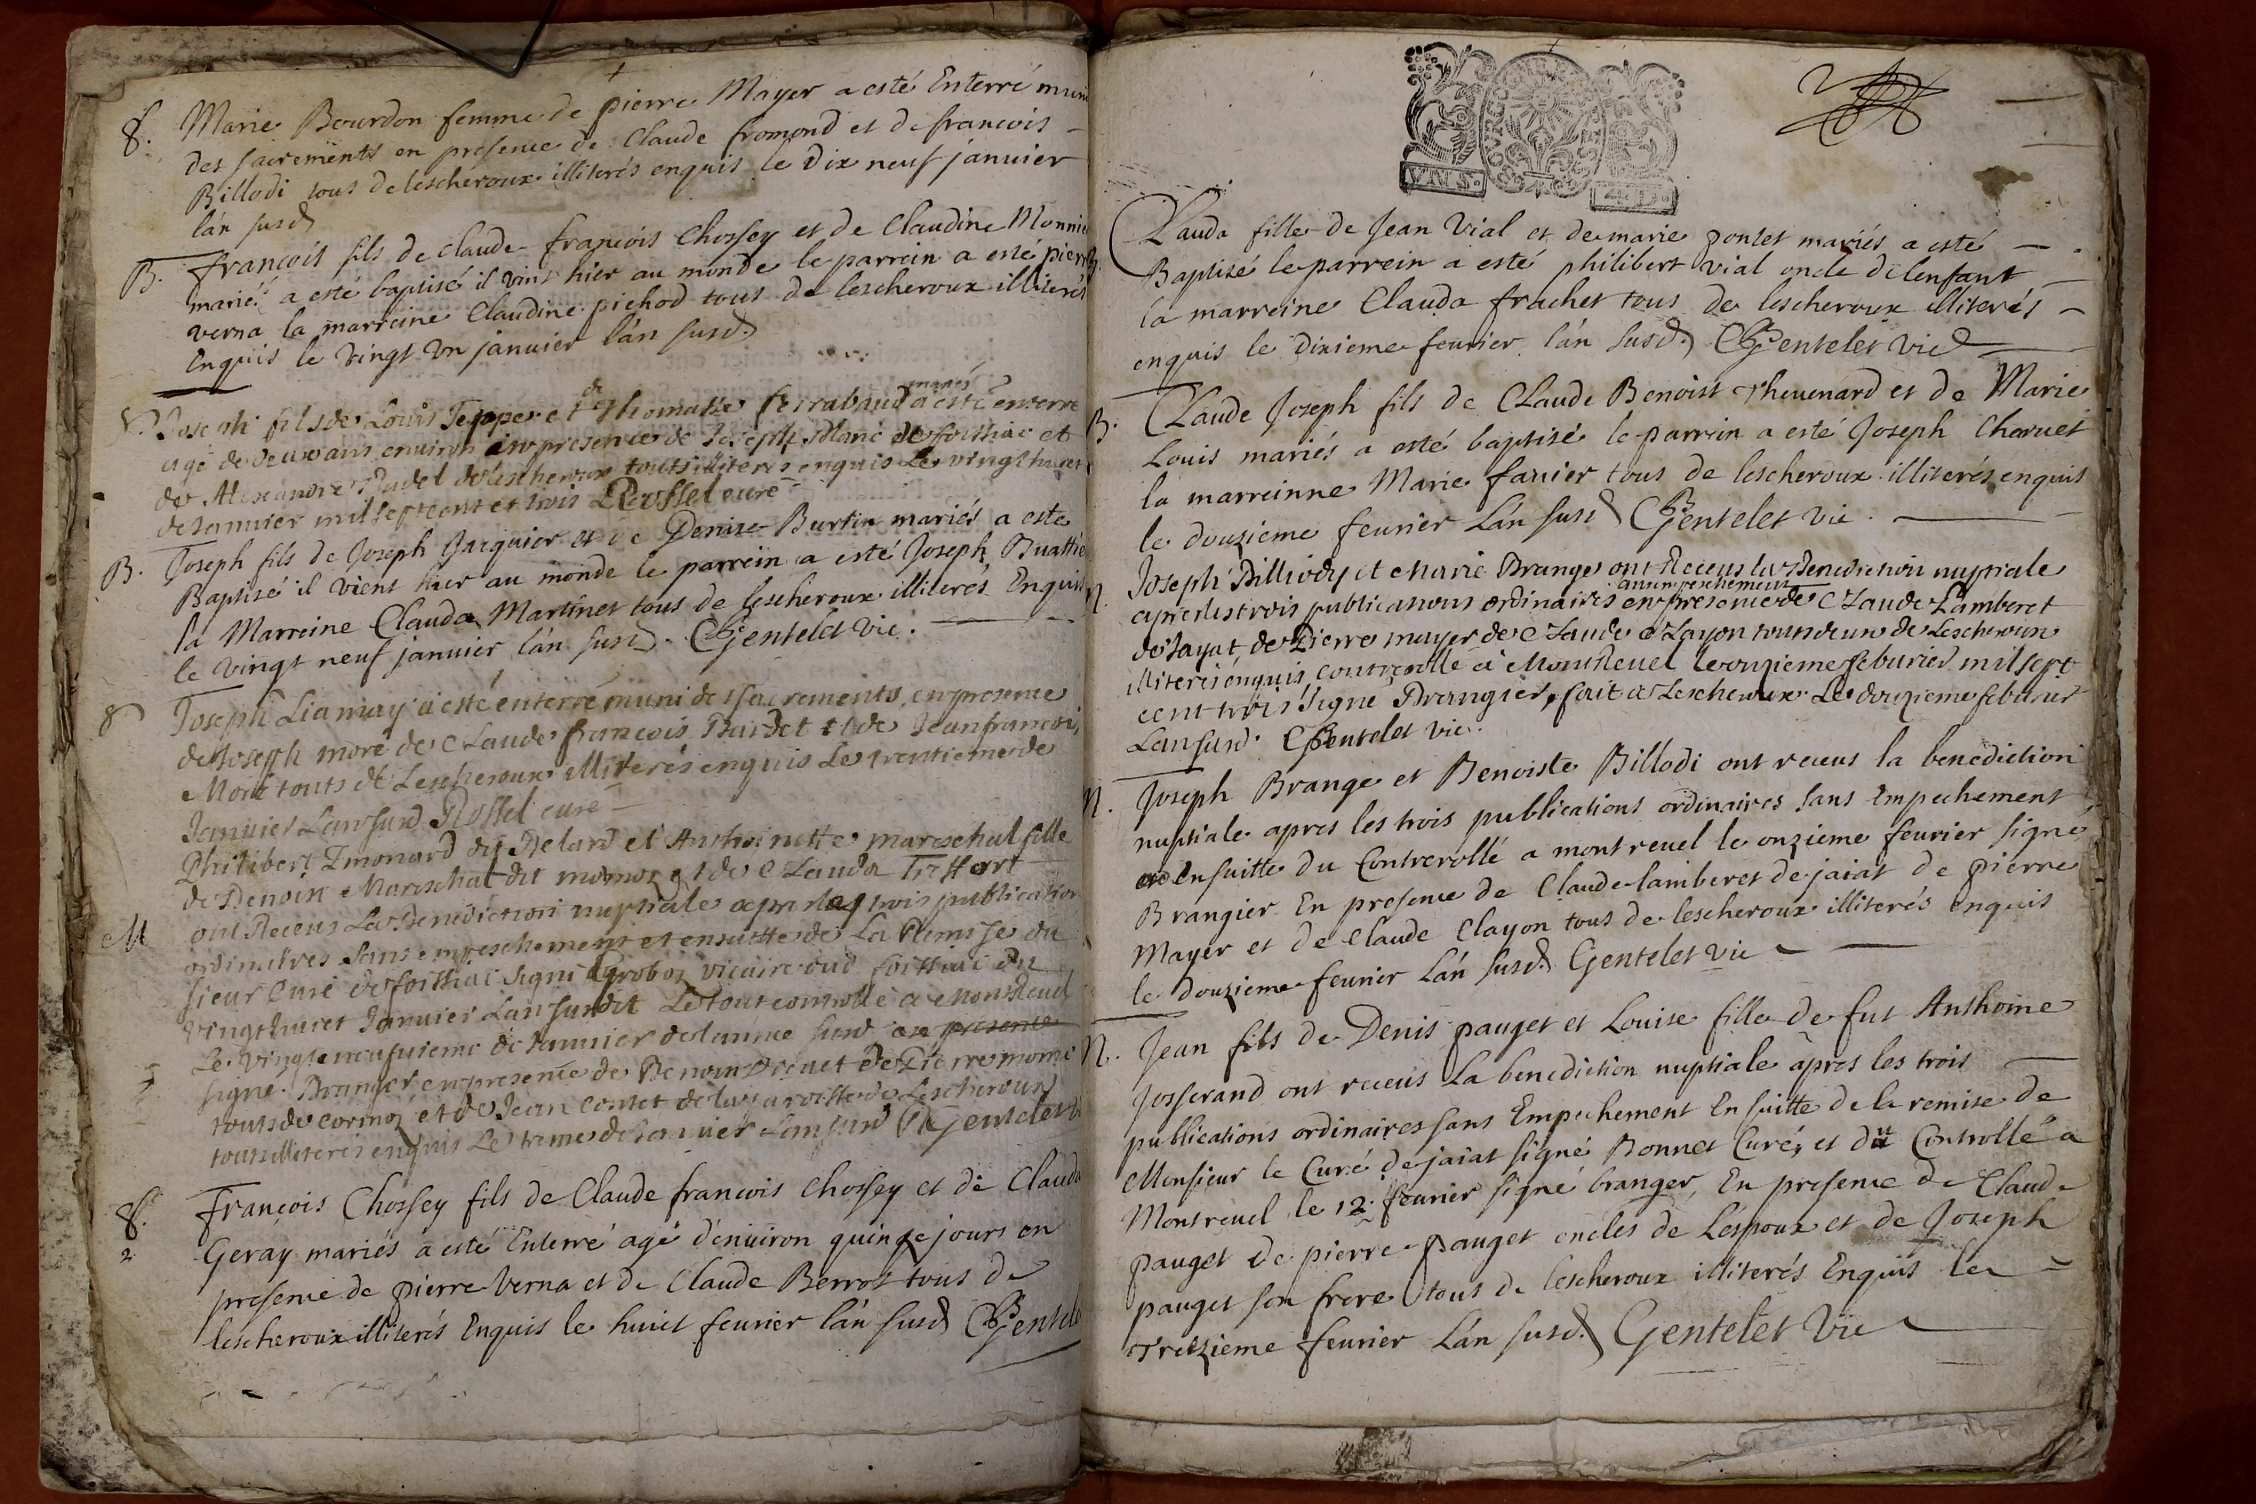 8. Marie Bourdon femme de pierre Mayer a esté Enterré muni
des sacrements en presence de Claude fromond et de francois
Billodi tous de lescheroux illiterés enquis le Dix neuf janvier
l'an susd
B. françois fils de claude françois Chossey et de Claudine Monnie
mariés a esté baptisé il vint hier au monde le parrein a esté pierre
verna la marreine Claudine pichod tous de lescheroux illiterés
Enquis le vingt Vn januier l'an susd.
Joseph fils de Louis Tejope et de Thomasse ferrabaud mariés a esté enterré
agé de deux ans environ en presence de Joseph Manc de foissiac et
de Alexandre Pudel de lescheroux touts illiterés enquis Le vingt huict
de Januier mil sept cent et trois Rossel curé
B. Joseph fils de Joseph Jarquier et de Denise Burtin mariés a este
Baptisé il vient hier au monde le parrein a esté Joseph Buathie
la Marreine Clauda Martinet tous de lescheroux illiterés Enquis
le vingt neuf januier l'an susd. Gentelet vic.
8 Joseph Liamay a esté enterré muni des sacrements en presence
de Joseph moré de Claude francois Burdet et de Jean francois
Moré touts de Lescheroux illiterés enquis Le trentieme de
Januier L'an susd Rossel curé
Philibert Emonard du Relard et Anthoinette mareschal fille
de Benoist Mareschal dit momoz et de Clauda Treffort
ont Receus La Benediction nuptiale apres les trois publication
M ordinaires sans empeschement et ensuitte de La Remisse du
sieur Curé de foissiac signé Groboz vicaire dud foissiac du
vingt huict Januier L'an susdit Le tout controllé a Montreuel
Le vingt neufuieme de Januier de lannee susd en presence
signé Branger en presence de Benoist Drevet de Pierre momé
touts de cormoz et de Jean contet de la paroisse de Lescheroux
touts illiterés enquis Le trente de Januier L'an susd Gentelet v
8. François Chossey fils de Claude francois Chossey et de Clauda
2 Geray mariés a esté Enterré agé d'enuiron quinze jours en
presence de pierre Verna et de Claude Berrod tous de
lescheroux illiterés Enquis le huict feurier l'an susd Gentele
VNS.
Clauda fille de Jean Vial et de marie pontet mariés a esté
Baptisé le parrein a esté philibert vial oncle de lenfant
la marreine Clauda frachet tous de lescheroux illiterés
enquis le dixieme feurier l'an susd. Gentelet vic
B. Claude Joseph fils de Claude Benoist Theuenard et de Marie
Louis mariés a esté baptisé le parrein a esté Joseph Charuet
la marreinne Marie fauier tous de lescheroux illiterés enquis
le douzieme feurier L'an susd Gentelet vic.
N. Joseph Billiody et Marie Brange ont Receus la Benediction nuptiale
apres les trois publications ordinaires sans empeschement en presence de Claude Lamberet
de Jayat de Pierre mayer de Claude Clayon touts deux de Lescheroux
illiterés enquis controllé a Montreuel Le onzieme feburier mil sept
cent trois signé Brangier, fait a Lescheroux Le douzieme feburier
L'an susd. Gentelet vic.
N. Joseph Brange et Benoiste Billodi ont receus la benediction
nuptiale apres les trois publications ordinaires sans Empechement
et Ensuitte du Contrerollé a montreuel le onzieme feurier signé
Brangier En presence de Claude lamberet de jaiat de pierre
Mayer et de Claude Clayon tous de lescheroux illiterés enquis
le Douzieme feurier L'an susd. Gentelet vic
N. Jean fils de Denis pauget et Louise fille de fut Anthoine
Josserand ont receus La benediction nuptiale apres les trois
publications ordinaires sans Empechement En suitte de la remise de
Monsieur le Curé de jaiat signé Bonnet Curé, et dut Controllé a
Montreuel le 12. feurier signé branger, En presence de Claude
pauget de pierre pauget oncles de L'espoux et de Joseph
pauget son frere tous de lescheroux illiterés Enquis le
Treizieme feurier L'an susd. Gentelet Vic